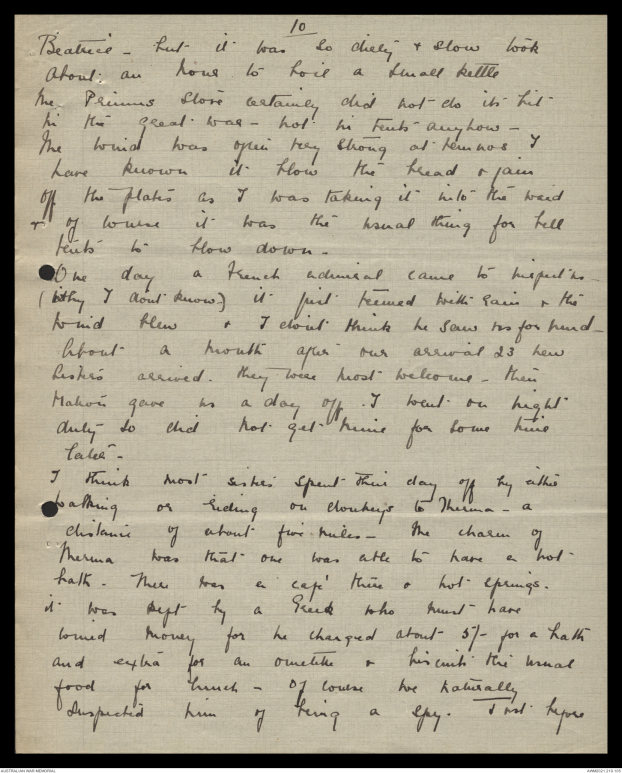 10
Beatrice - but it was so dirty & slow took
about an hour to boil a small kettle
The Primus Stove certainly did not do its bit
in the great war - not in tents anyhow -
The wind was often very strong at Lemnos I
have known it blow the bread & jam
off the plates as I was taking it into the ward
& of course it was the usual thing for bell
tents to blow down -
One day a French admiral came to inspect us
(why I dont know) it just teemed with rain & the
wind blew & I don't think he saw us for mud -
About a month after our arrival 23 new
Sisters arrived. they were most welcome - then
Matron gave us a day off. I went on night
duty so did not get mine for some time
later -
I think most sisters spent their day off by either
walking or riding on donkeys to Therma - a
distance of about five miles - The charm of
Therma was that one was able to have a hot
bath - There was a café there & hot springs.
it was kept by a Greek who must have
coined money for he charged about 5/- for a bath
and extra for an omelette & biscuits the usual
food for lunch - Of course we naturally
suspected him of being a spy. Just before
AUSTRALIAN WAR MEMORIAL